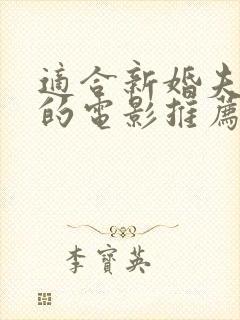 適合新婚夫
的電影推薦
李寶英